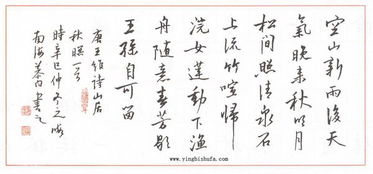 空山新雨後天
氣晚来秋明月
松間照清泉石
上流竹喧歸
浣女蓮動下漁
舟随意春芳歇
王孫自可留
唐王維诗山居
秋暝一首
時辛巳仲冬之
南海慕白書之
www.yingbishufa.com